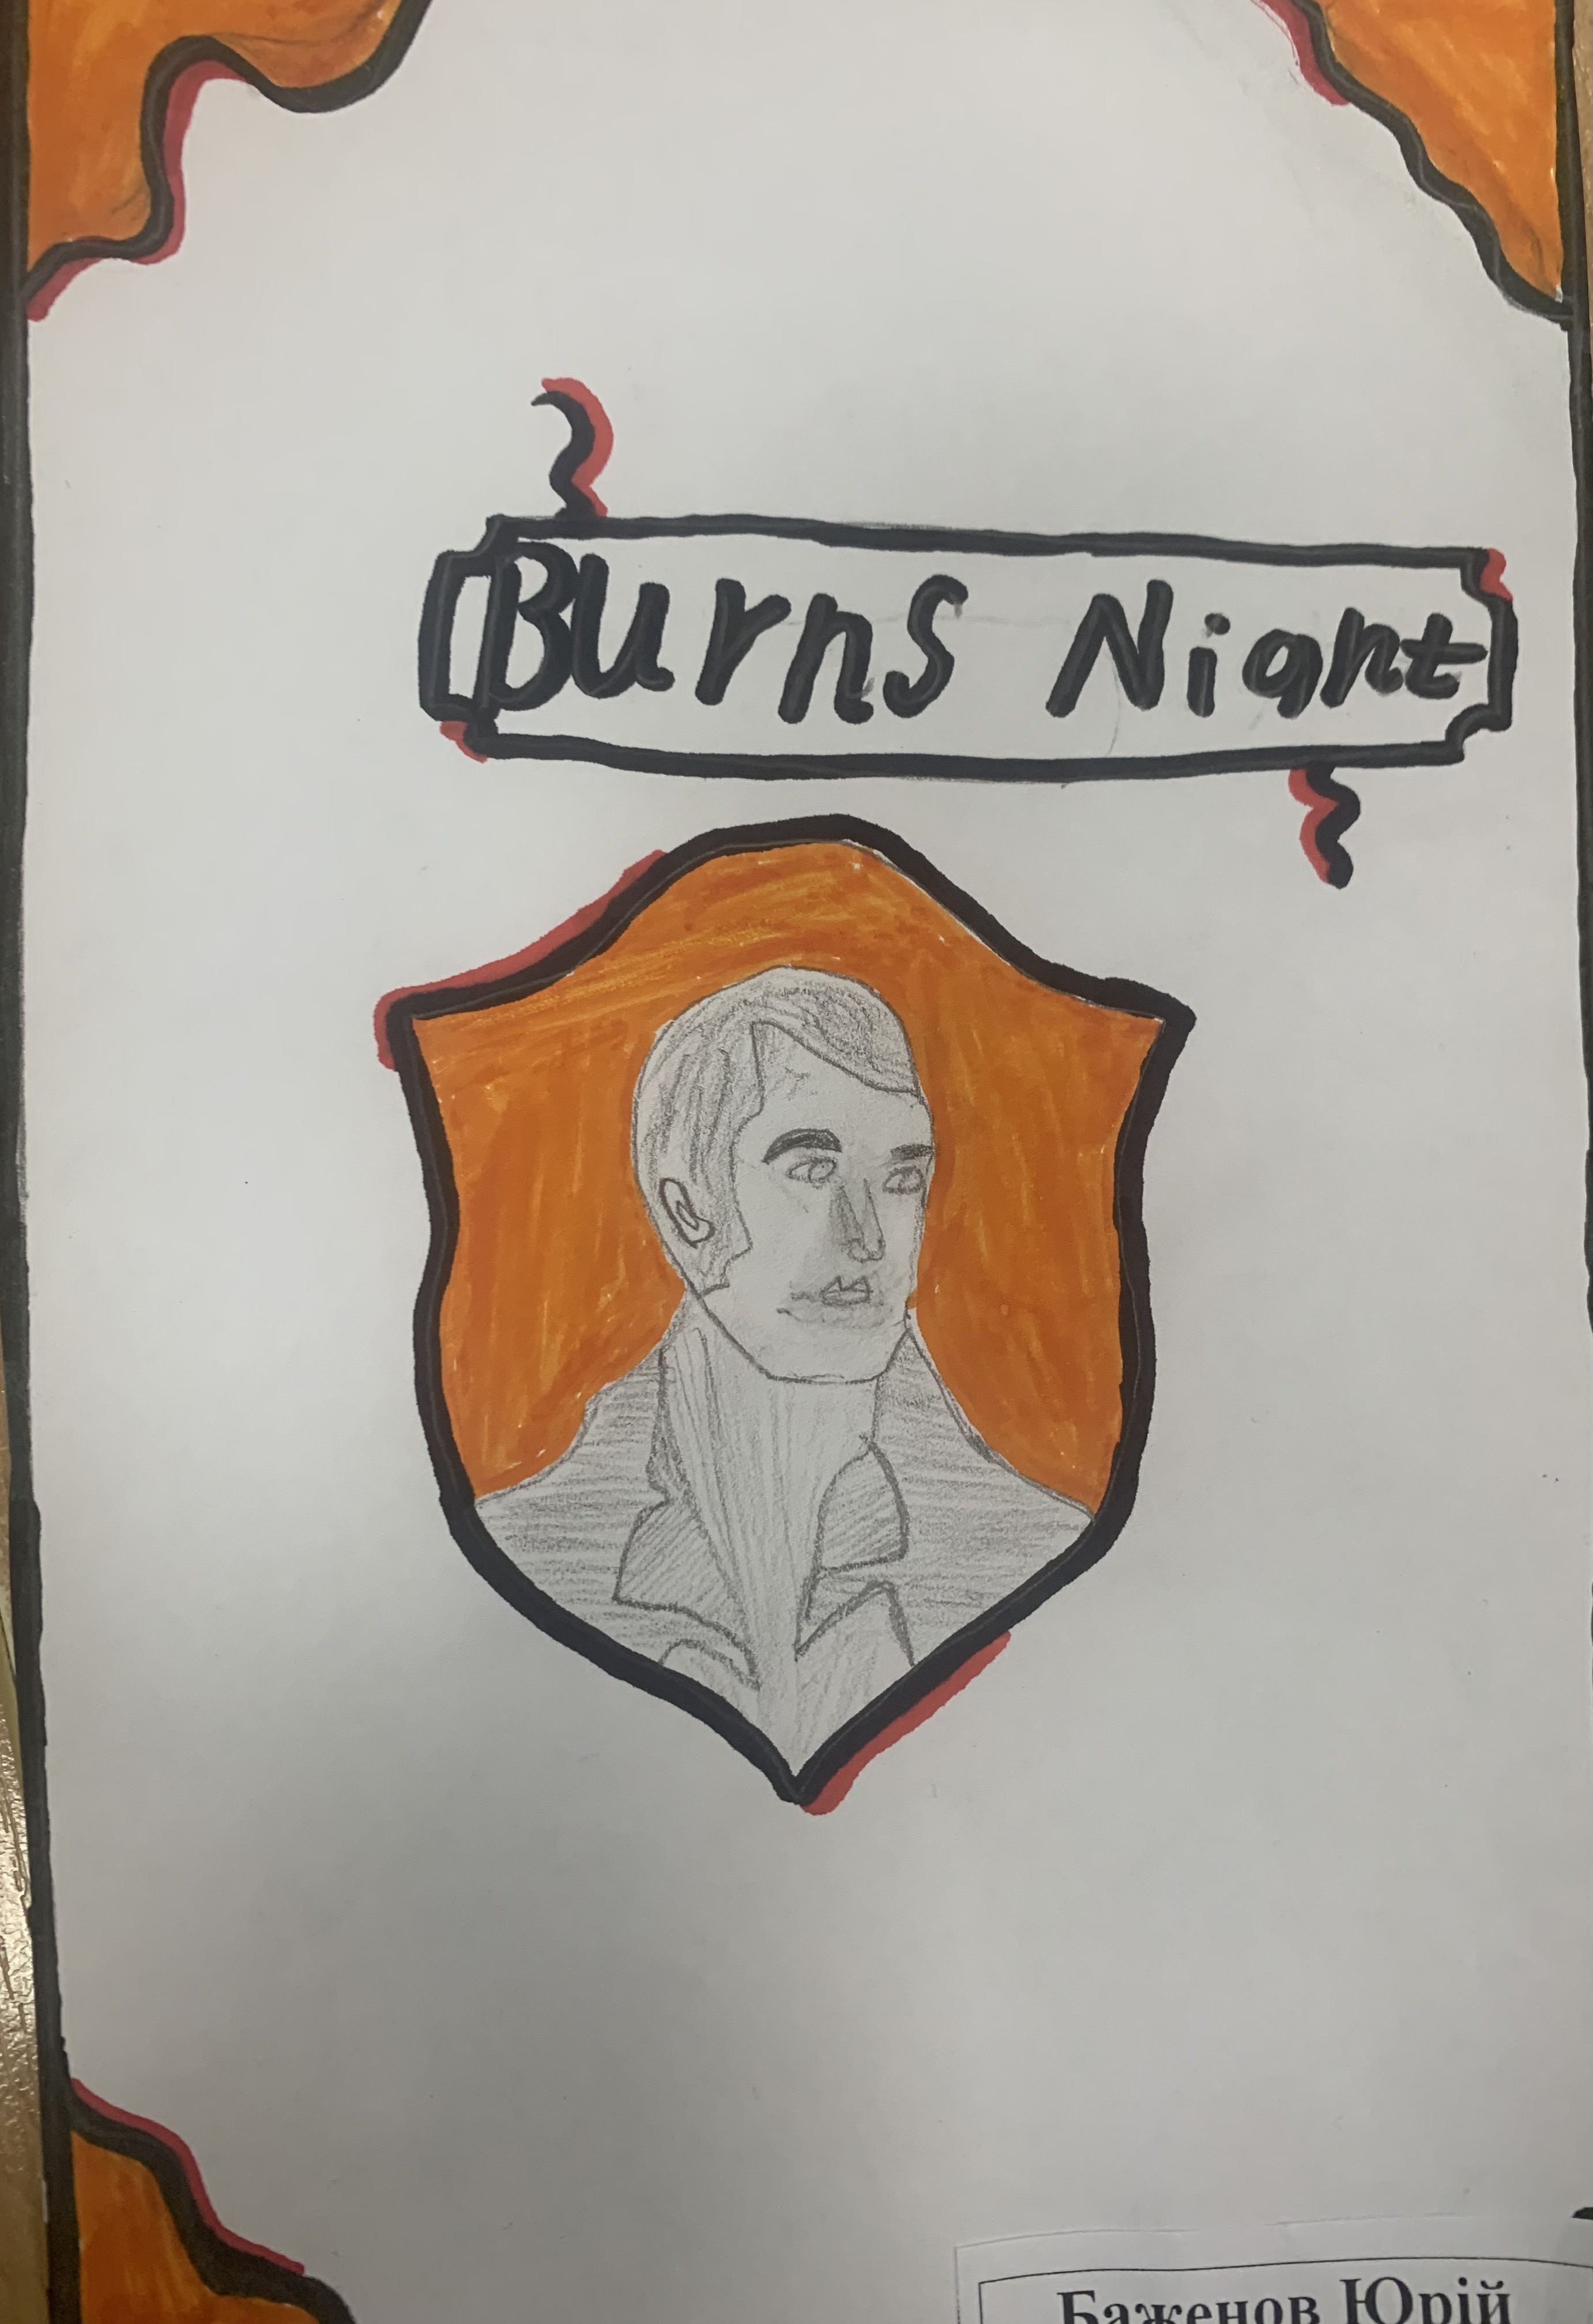 Burns Night
Баженов Юрій